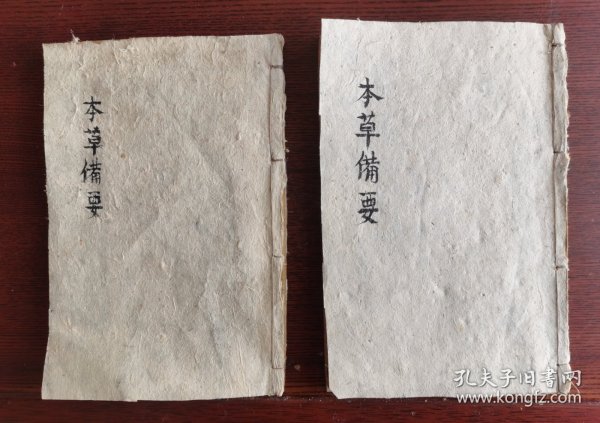 本草備要
本草備要
孔夫子旧书网
www.kongfz.com